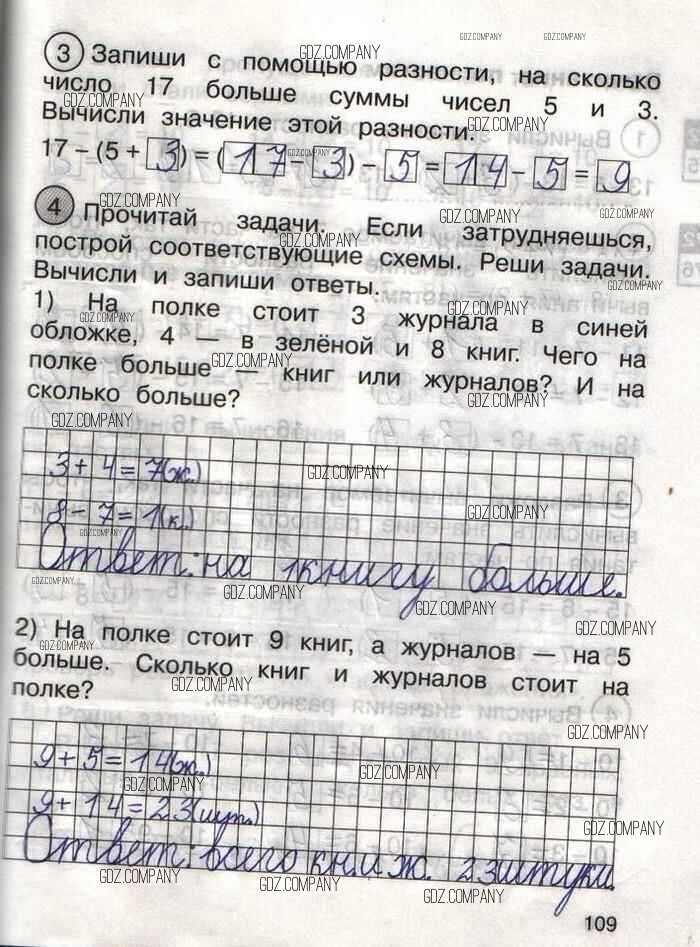 3 Запиши с помощью разности, на сколько
число 17 больше суммы чисел 5 и 3.
Вычисли значение этой разности.
17 – (5 + 3) = (17 – 3) – 5 = 14 – 5 = 9
4 Прочитай задачи. Если затрудняешься,
построй соответствующие схемы. Реши задачи.
Вычисли и запиши ответы.
1) На полке стоит 3 журнала в синей
обложке, 4 — в зелёной и 8 книг. Чего на
полке больше — книг или журналов? И на
сколько больше?
3 + 4 = 7(ж.)
8 – 7 = 1(к.)
Ответ: на 1 книгу больше.
2) На полке стоит 9 книг, а журналов — на 5
больше. Сколько книг и журналов стоит на
полке?
9 + 5 = 14(ж.)
9 + 14 = 23(шт.)
Ответ: всего кн. и ж. 23 штуки.
109
GDZ.COMPANY